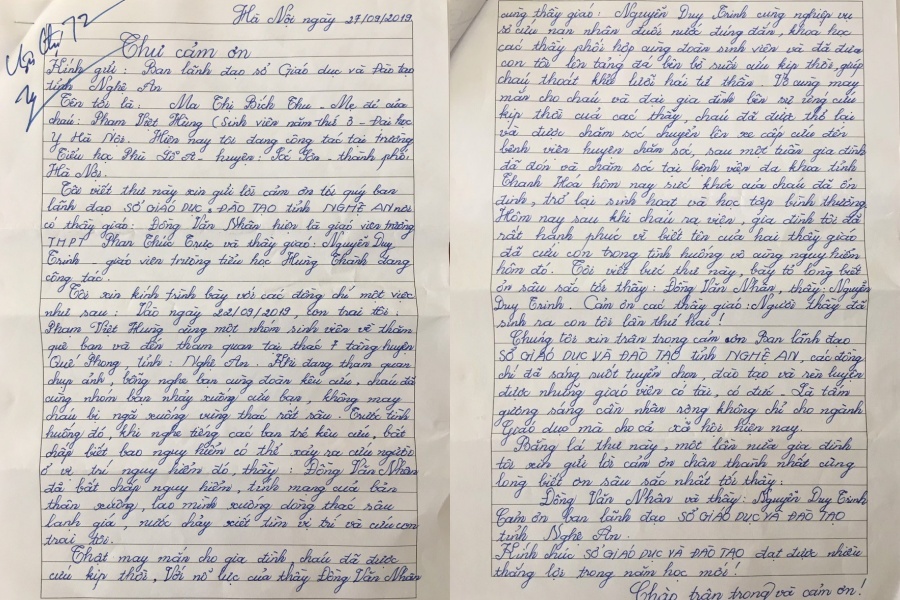 Hà Nội ngày 27/09/2019
Thư cảm ơn
Kính gửi: Ban lãnh đạo sở Giáo dục và Đào tạo
tỉnh Nghệ An
Tên tôi là: Ma Thị Bích Thu - Mẹ đẻ của
cháu: Phạm Việt Hùng (Sinh viên năm thứ 3 - Đại học
Y Hà Nội. Hiện nay tôi đang công tác tại trường
Tiểu học Phù - huyện: - thành phố
Hà Nội.
Tôi viết thư này xin gửi lời cảm ơn tới quý ban
lãnh đạo SỞ GIÁO DỤC & ĐÀO TẠO tỉnh NGHỆ AN nơi
có thầy giáo: Đông Văn Nhân hiện là giáo viên trường
TMPT Phan Thúc Trực và thầy giáo: Nguyễn Duy
Trinh - giáo viên trường tiểu học Hưng Thành đang
công tác.
Tôi xin kính trình bày với các đồng chí một việc
như sau: Vào ngày 22/09/2019, con trai tôi:
Phạm Việt Hùng cùng một nhóm sinh viên về thăm
quê bạn và đến tham quan tại thác 7 tầng huyện
Quế Phong, tỉnh: Nghệ An. Khi đang tham quan
chụp ảnh, bỗng nghe bạn cùng đoàn kêu cứu, cháu đã
cùng nhóm bạn nhảy xuống cứu bạn, không may
cháu bị ngã xuống vùng thác rất sâu. Trước tình
huống đó, khi nghe tiếng các bạn trẻ kêu cứu, bất
chấp biết bao nguy hiểm có thể xảy ra cứu người
ở vị trí nguy hiểm đó, thầy: Đông Văn Nhân
đã bất chấp nguy hiểm, tính mạng của bản
thân xuống, lao mình xuống dòng thác sâu
lạnh giá, nước chảy xiết tìm vị trí và cứu con
trai tôi.
Thật may mắn cho gia đình cháu đã được
cứu kịp thời, Với nỗ lực của thầy Đông Văn Nhân
cùng thầy giáo: Nguyễn Duy Trinh cùng nghiệp vụ
sơ cứu nạn nhân đuối nước đúng đắn, khoa học
các thầy phối hợp cùng đoàn sinh viên và đã đưa
con tôi lên tảng đá bên bờ suối cứu kịp thời, giúp
cháu thoát khỏi lưỡi hái tử thần. Vô cùng may
mắn cho cháu và đại gia đình bên sự ứng cứu
kịp thời của các thầy, cháu đã được thở lại
và được chăm sóc chuyển lên xe cấp cứu đến
bệnh viện huyện chăm sóc, sau một tuần gia đình
đã đón và chăm sóc tại bệnh viện đa khoa tỉnh
Thanh Hoá hôm nay sức khỏe của cháu đã ổn
định, trở lại sinh hoạt và học tập bình thường.
Hôm nay sau khi cháu ra viện, gia đình tôi đã
rất hạnh phúc vì biết tên của hai thầy giáo
đã cứu con trong tình huống vô cùng nguy hiểm
hôm đó. Tôi viết bức thư này, bày tỏ lòng biết
ơn sâu sắc tới thầy: Đông Văn Nhân, thầy: Nguyễn
Duy Trinh. Cảm ơn các thầy giáo: Người thầy đã
sinh ra con tôi lần thứ hai!
Chúng tôi xin trân trọng cảm ơn Ban lãnh đạo
SỞ GIÁO DỤC VÀ ĐÀO TẠO tỉnh NGHỆ AN, các đồng
chí đã sáng suốt tuyển chọn, đào tạo và rèn luyện
được những giáo viên có tài, có đức. Là tấm
gương sáng cần nhân rộng không chỉ cho ngành
Giáo dục mà cho cả xã hội hiện nay.
Bằng lá thư này, một lần nữa gia đình
tôi xin gửi lời cảm ơn chân thành nhất cùng
lòng biết ơn sâu sắc nhất tới thầy:
Đông Văn Nhân và thầy: Nguyễn Duy Trinh
Cảm ơn ban lãnh đạo SỞ GIÁO DỤC VÀ ĐÀO TẠO
tỉnh Nghệ An.
Kính chúc SỞ GIÁO DỤC VÀ ĐÀO TẠO đạt được nhiều
thắng lợi trong năm học mới!
Chào trân trọng và cảm ơn!